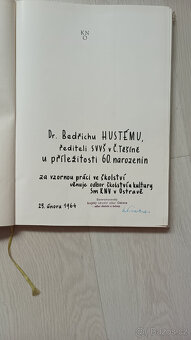 KN
O
Dr. Bedřichu HUSTÉMU,
řediteli SVVŠ v Č.Těšíně
u příležitosti 60. narozenin
za vzornou práci ve školství
věnuje odbor školství a kultury
Sm KNV v Ostravě
29. února 1964